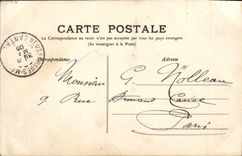 CARTE POSTALE
La Correspondance au recto n'est pas acceptée par tous les pays étrangers
(Se renseigner à la Poste)
Correspondance Adresse
Monsieur G. Nolleau
9 Rue
Paris